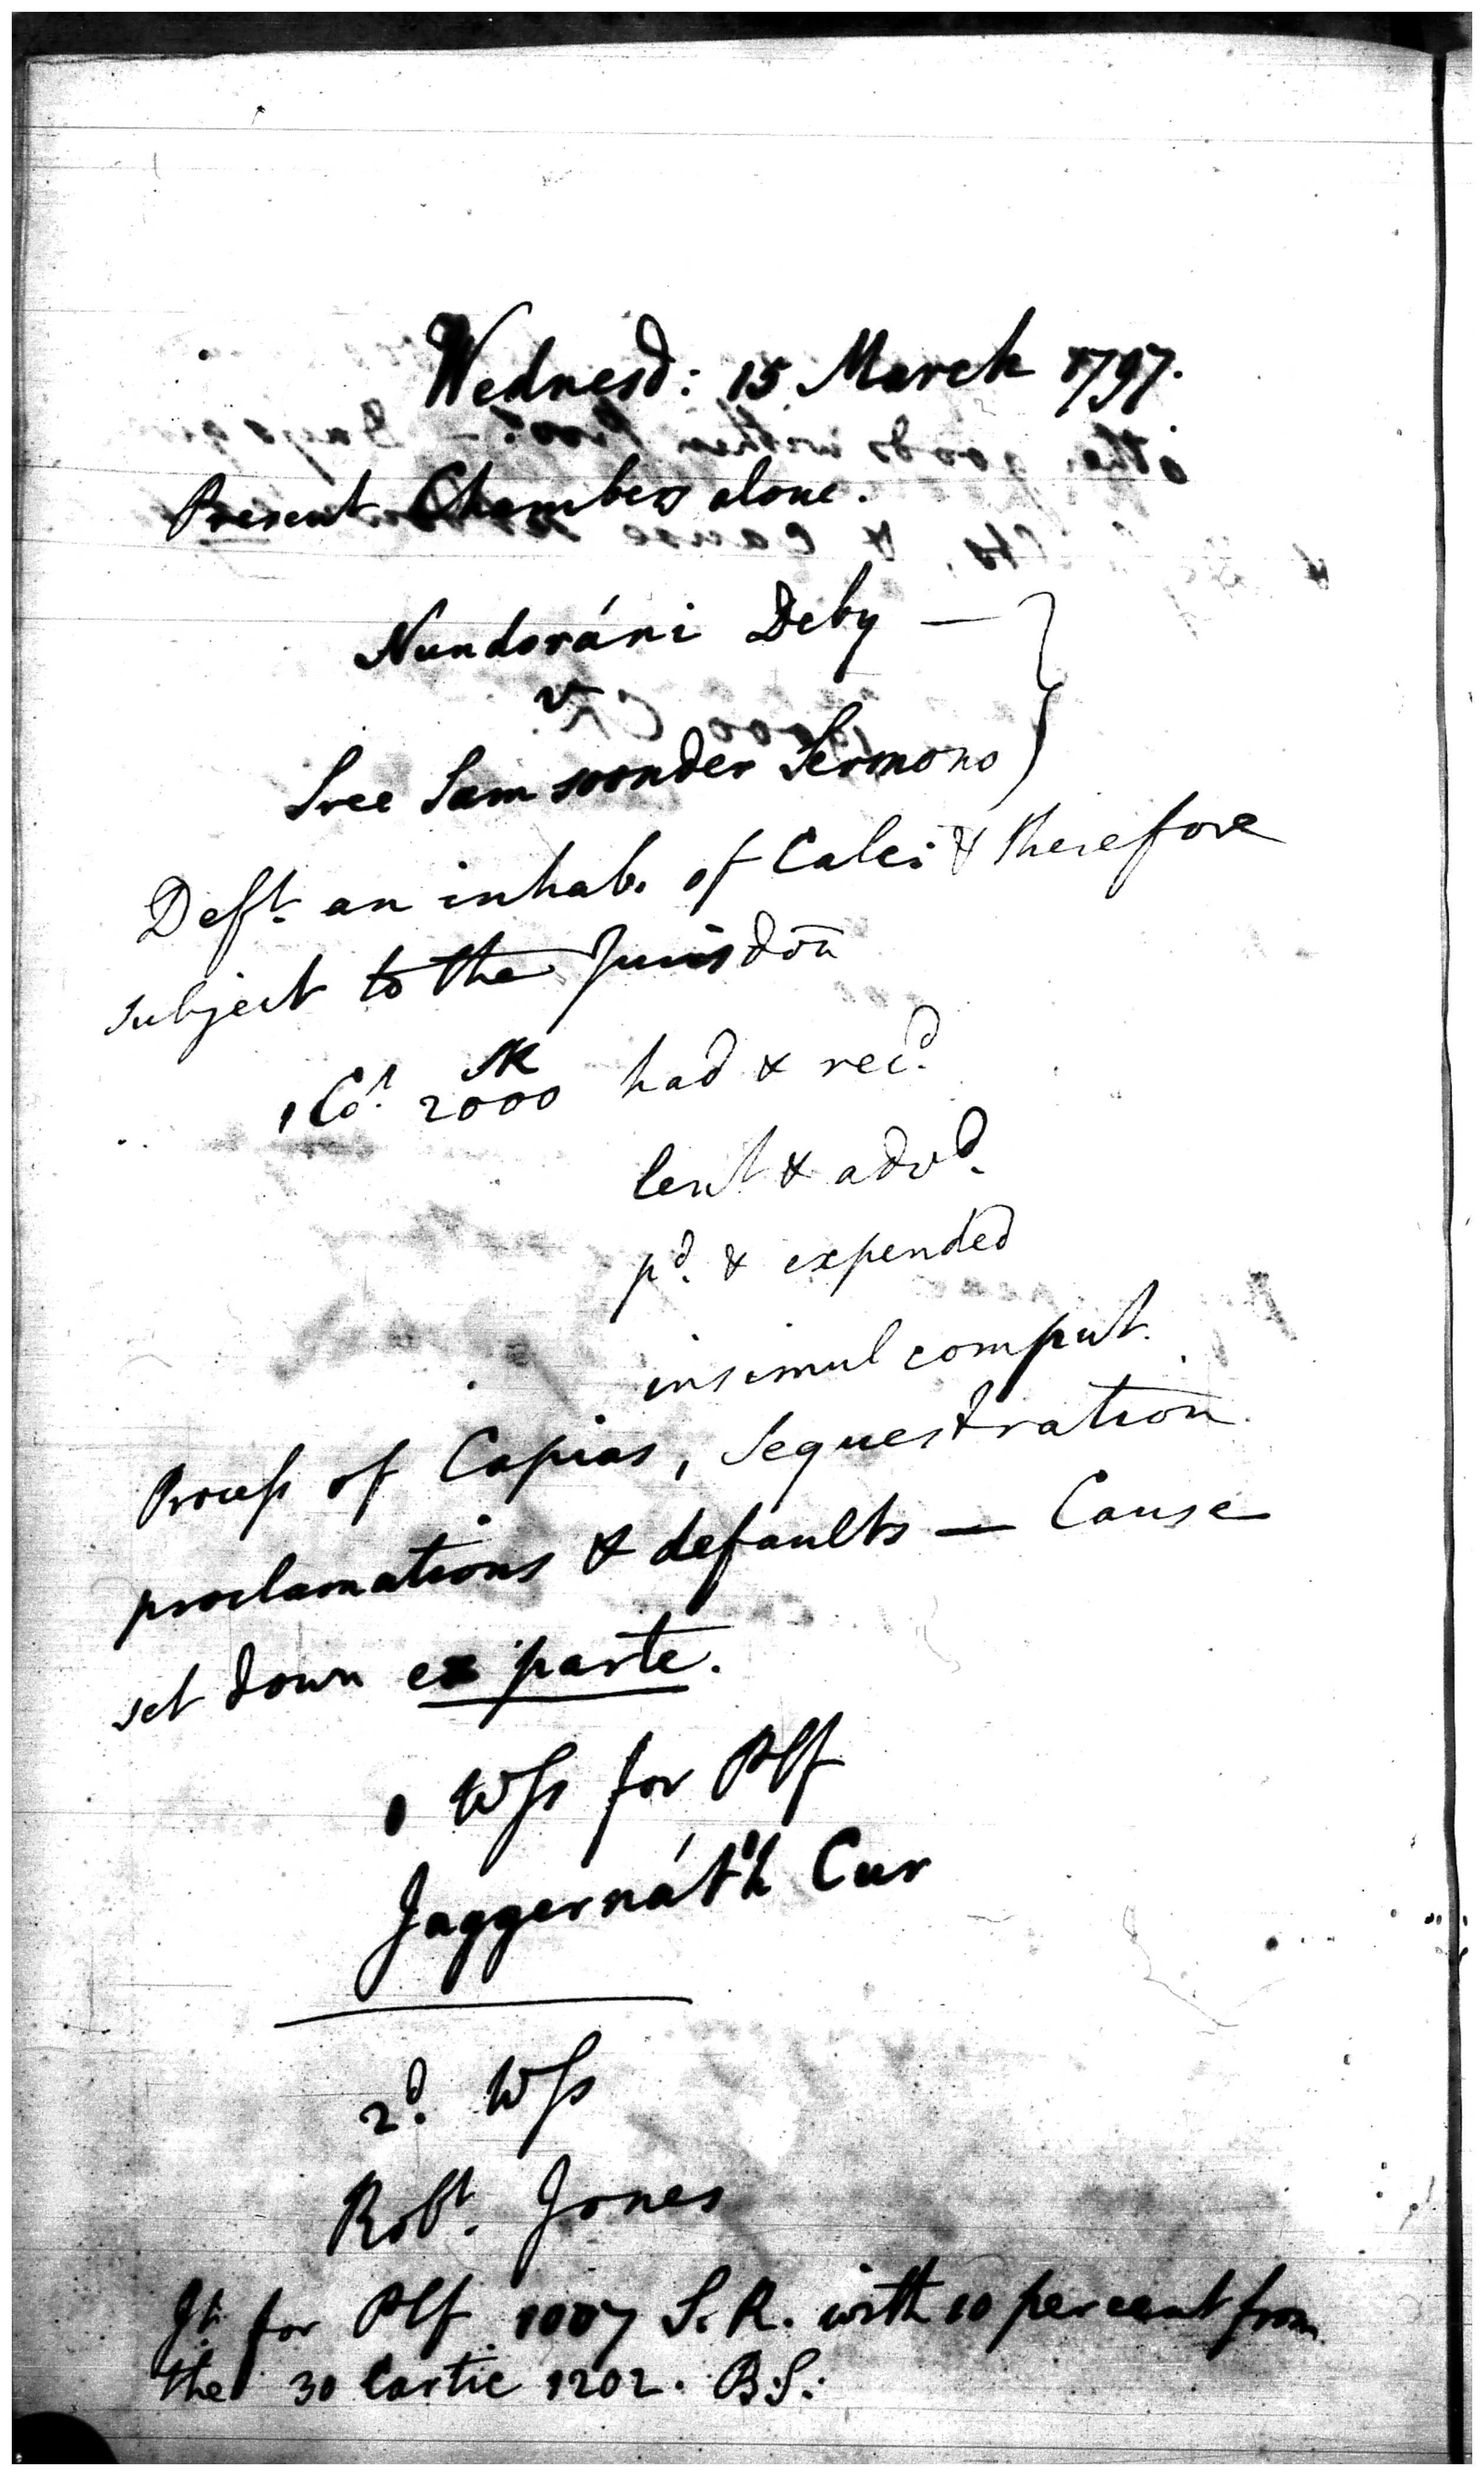 Wednesd: 15 March 1797.
Present Chambers alone.
Nundoráni Deby —
v
Sree Sam soonder Sermono
Deft. an inhab. of Calc: & therefore
subject to the Jurisdōn
1 Cot. 2000 SR had & recd.
lent & advd.
pd. & expended
insimul comput.
Process of Capias, Sequestration
proclamations & defaults — Cause
set down ex parte.
1 Wss for Plf
Jaggernáth Cur
2d. Wss
Robt. Jones
Jt. for Plf 1007 S.R. with 10 per cent from
the 30 Cartic 1202. B.S.